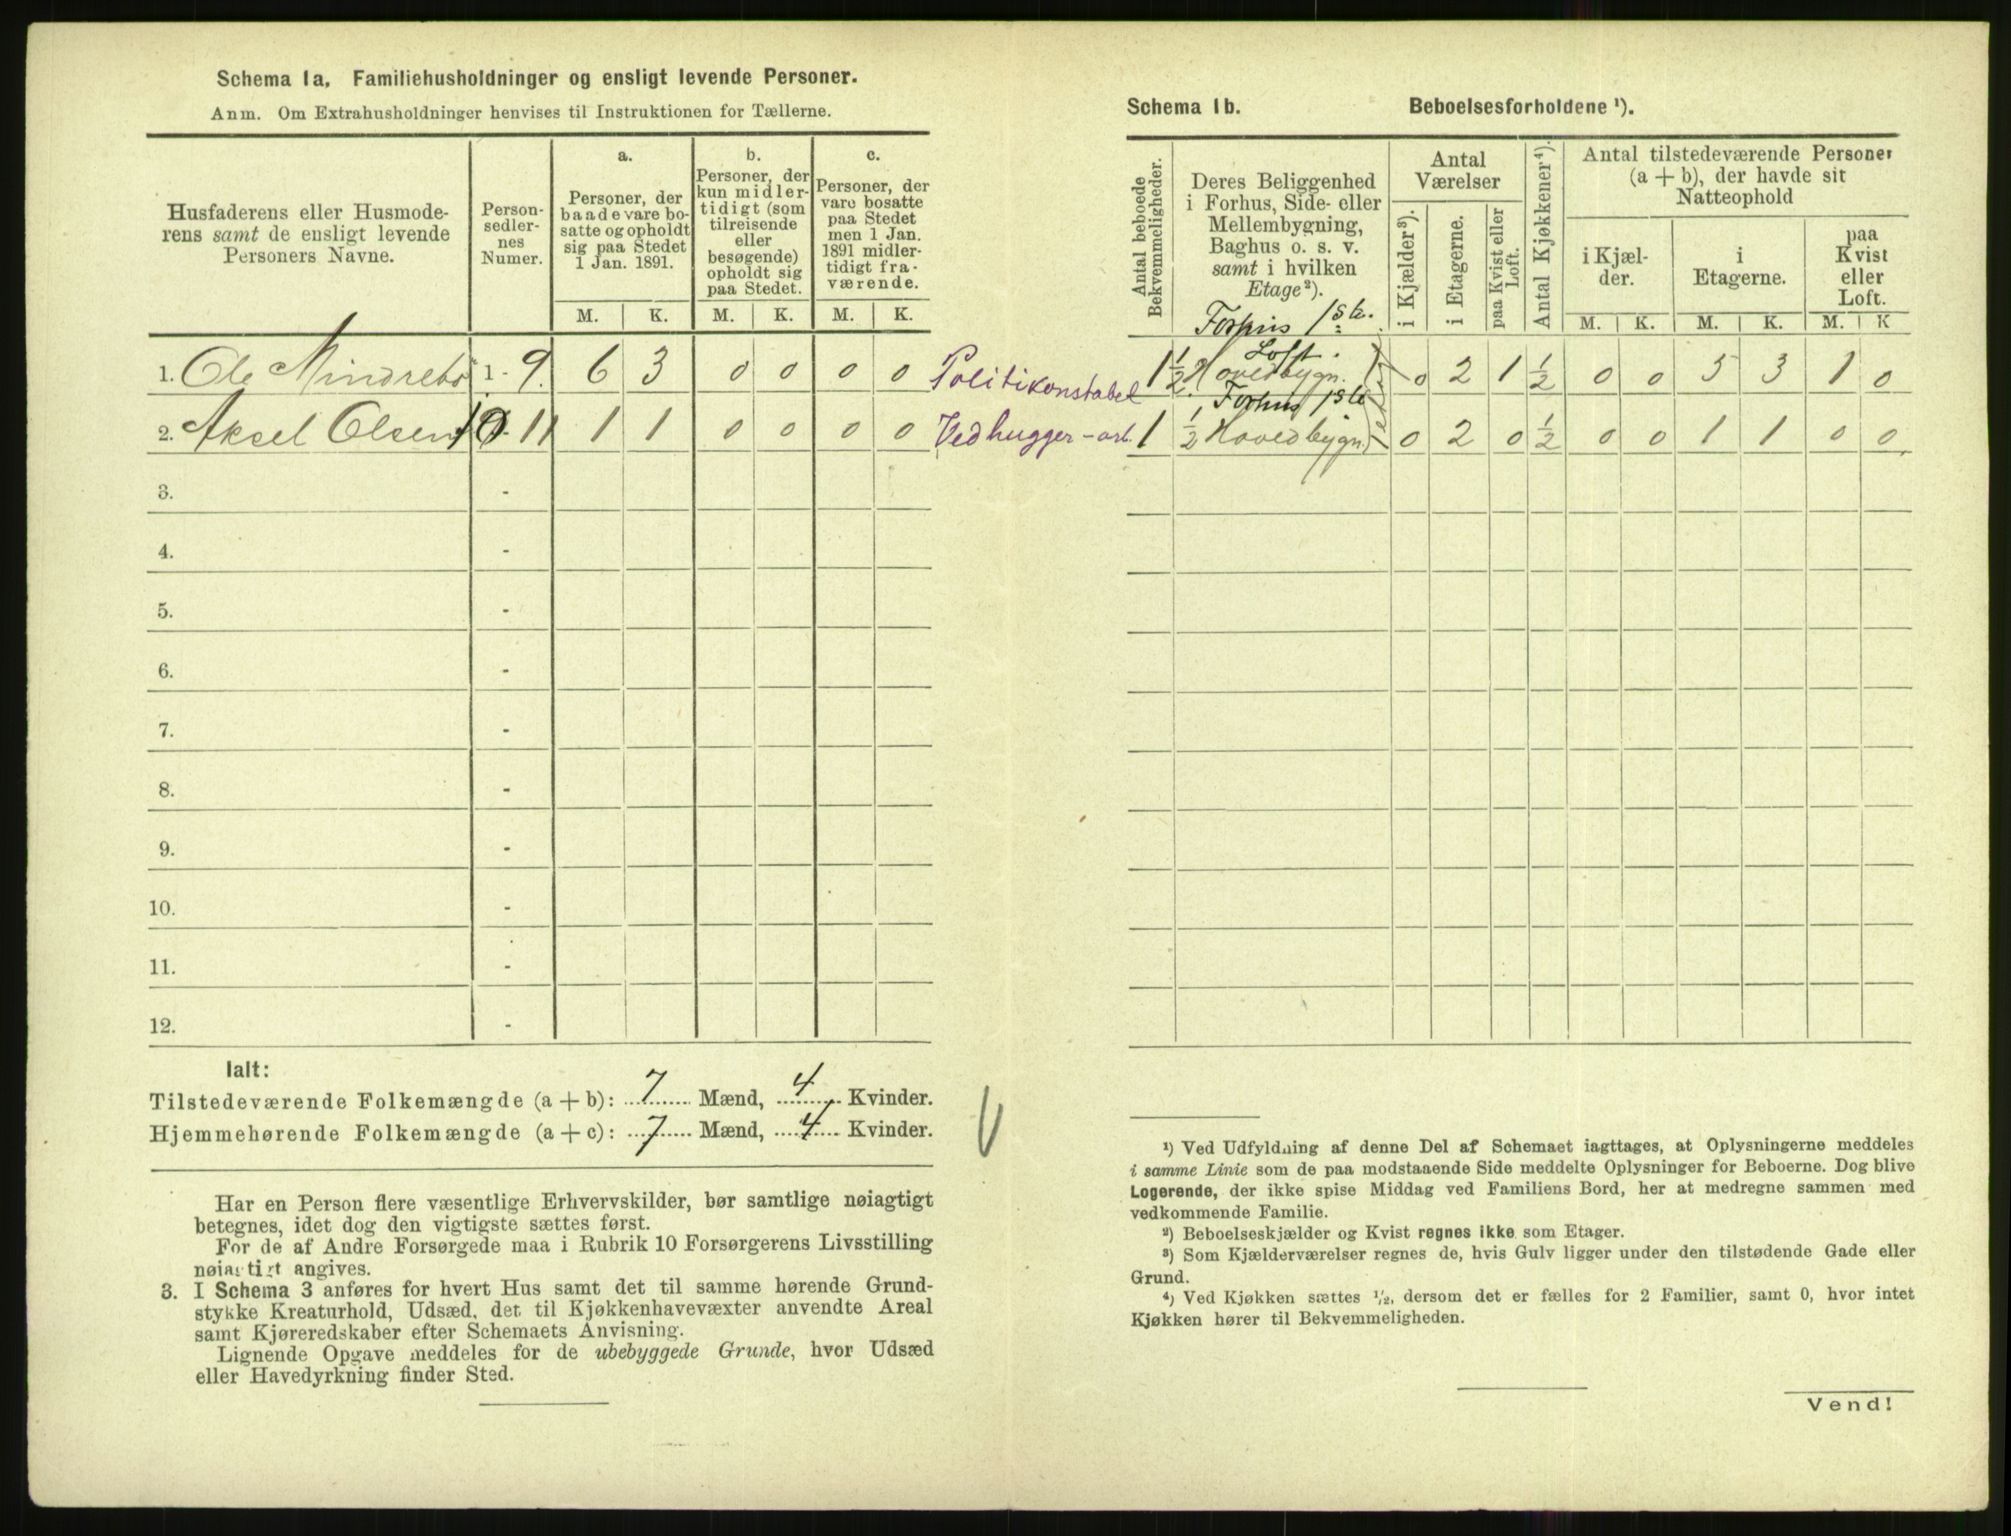 Schema 1a. Familiehusholdninger og ensligt levende Personer.
Anm. Om Extrahusholdninger henvises til Instruktionen for Tællerne.
Husfaderens eller Husmode-
rens samt de ensligt levende
Personers Navne.
Person-
sedler-
nes
Numer.
a.
Personer, der
baade vare bo-
satte og opholdt
sig paa Stedet
1 Jan. 1891.
b.
Personer, der
kun midler-
tidigt (som
tilreisende
eller
besøgende)
opholdt sig
paa Stedet.
c.
Personer, der
vare bosatte
paa Stedet
men 1 Jan.
1891 midler-
tidigt fra-
værende.
M. K. M. K. M. K.
1. Ole Mindrebø 1 - 9. 6 3 0 0 0 0 Politikonstabel
2. Aksel Olsen 10 - 11 1 1 0 0 0 0 Vedhugger-arb.
3. -
4. -
5. -
6. -
7. -
8. -
9. -
10. -
11. -
12. -
Ialt:
Tilstedeværende Folkemængde (a + b): 7 Mænd, 4 Kvinder.
Hjemmehørende Folkemængde (a + c): 7 Mænd, 4 Kvinder.
Har en Person flere væsentlige Erhvervskilder, bør samtlige nøiagtigt
betegnes, idet dog den vigtigste sættes først.
For de af Andre Forsørgede maa i Rubrik 10 Forsørgerens Livsstilling
nøiagtigt angives.
3. I Schema 3 anføres for hvert Hus samt det til samme hørende Grund-
stykke Kreaturhold, Udsæd, det til Kjøkkenhavevæxter anvendte Areal
samt Kjøreredskaber efter Schemaets Anvisning.
Lignende Opgave meddeles for de ubebyggede Grunde, hvor Udsæd
eller Havedyrkning finder Sted.
Schema 1b. Beboelsesforholdene ¹).
Antal beboede
Bekvemmeligheder.
Deres Beliggenhed
i Forhus, Side- eller
Mellembygning,
Baghus o. s. v.
samt i hvilken
Etage²).
Antal
Værelser
i Kjælder³).
i Etagerne.
paa Kvist eller
Loft.
Antal Kjøkkener⁴).
Antal tilstedeværende Personer
(a + b), der havde sit
Natteophold
i Kjæl-
der.
i
Etagerne.
paa
Kvist
eller
Loft.
M. K. M. K. M. K
Forhus 1ste.
Loft.
1 ½ Hovedbygn. 0 2 1 ½ 0 0 5 3 1 0
Forhus 1ste
1 ½ Hovedbygn. 0 2 0 ½ 0 0 1 1 0 0
¹) Ved Udfyldning af denne Del af Schemaet iagttages, at Oplysningerne meddeles
i samme Linie som de paa modstaaende Side meddelte Oplysninger for Beboerne. Dog blive
Logerende, der ikke spise Middag ved Familiens Bord, her at medregne sammen med
vedkommende Familie.
²) Beboelseskjælder og Kvist regnes ikke som Etager.
³) Som Kjælderværelser regnes de, hvis Gulv ligger under den tilstødende Gade eller
Grund.
⁴) Ved Kjøkken sættes ½, dersom det er fælles for 2 Familier, samt 0, hvor intet
Kjøkken hører til Bekvemmeligheden.
Vend!